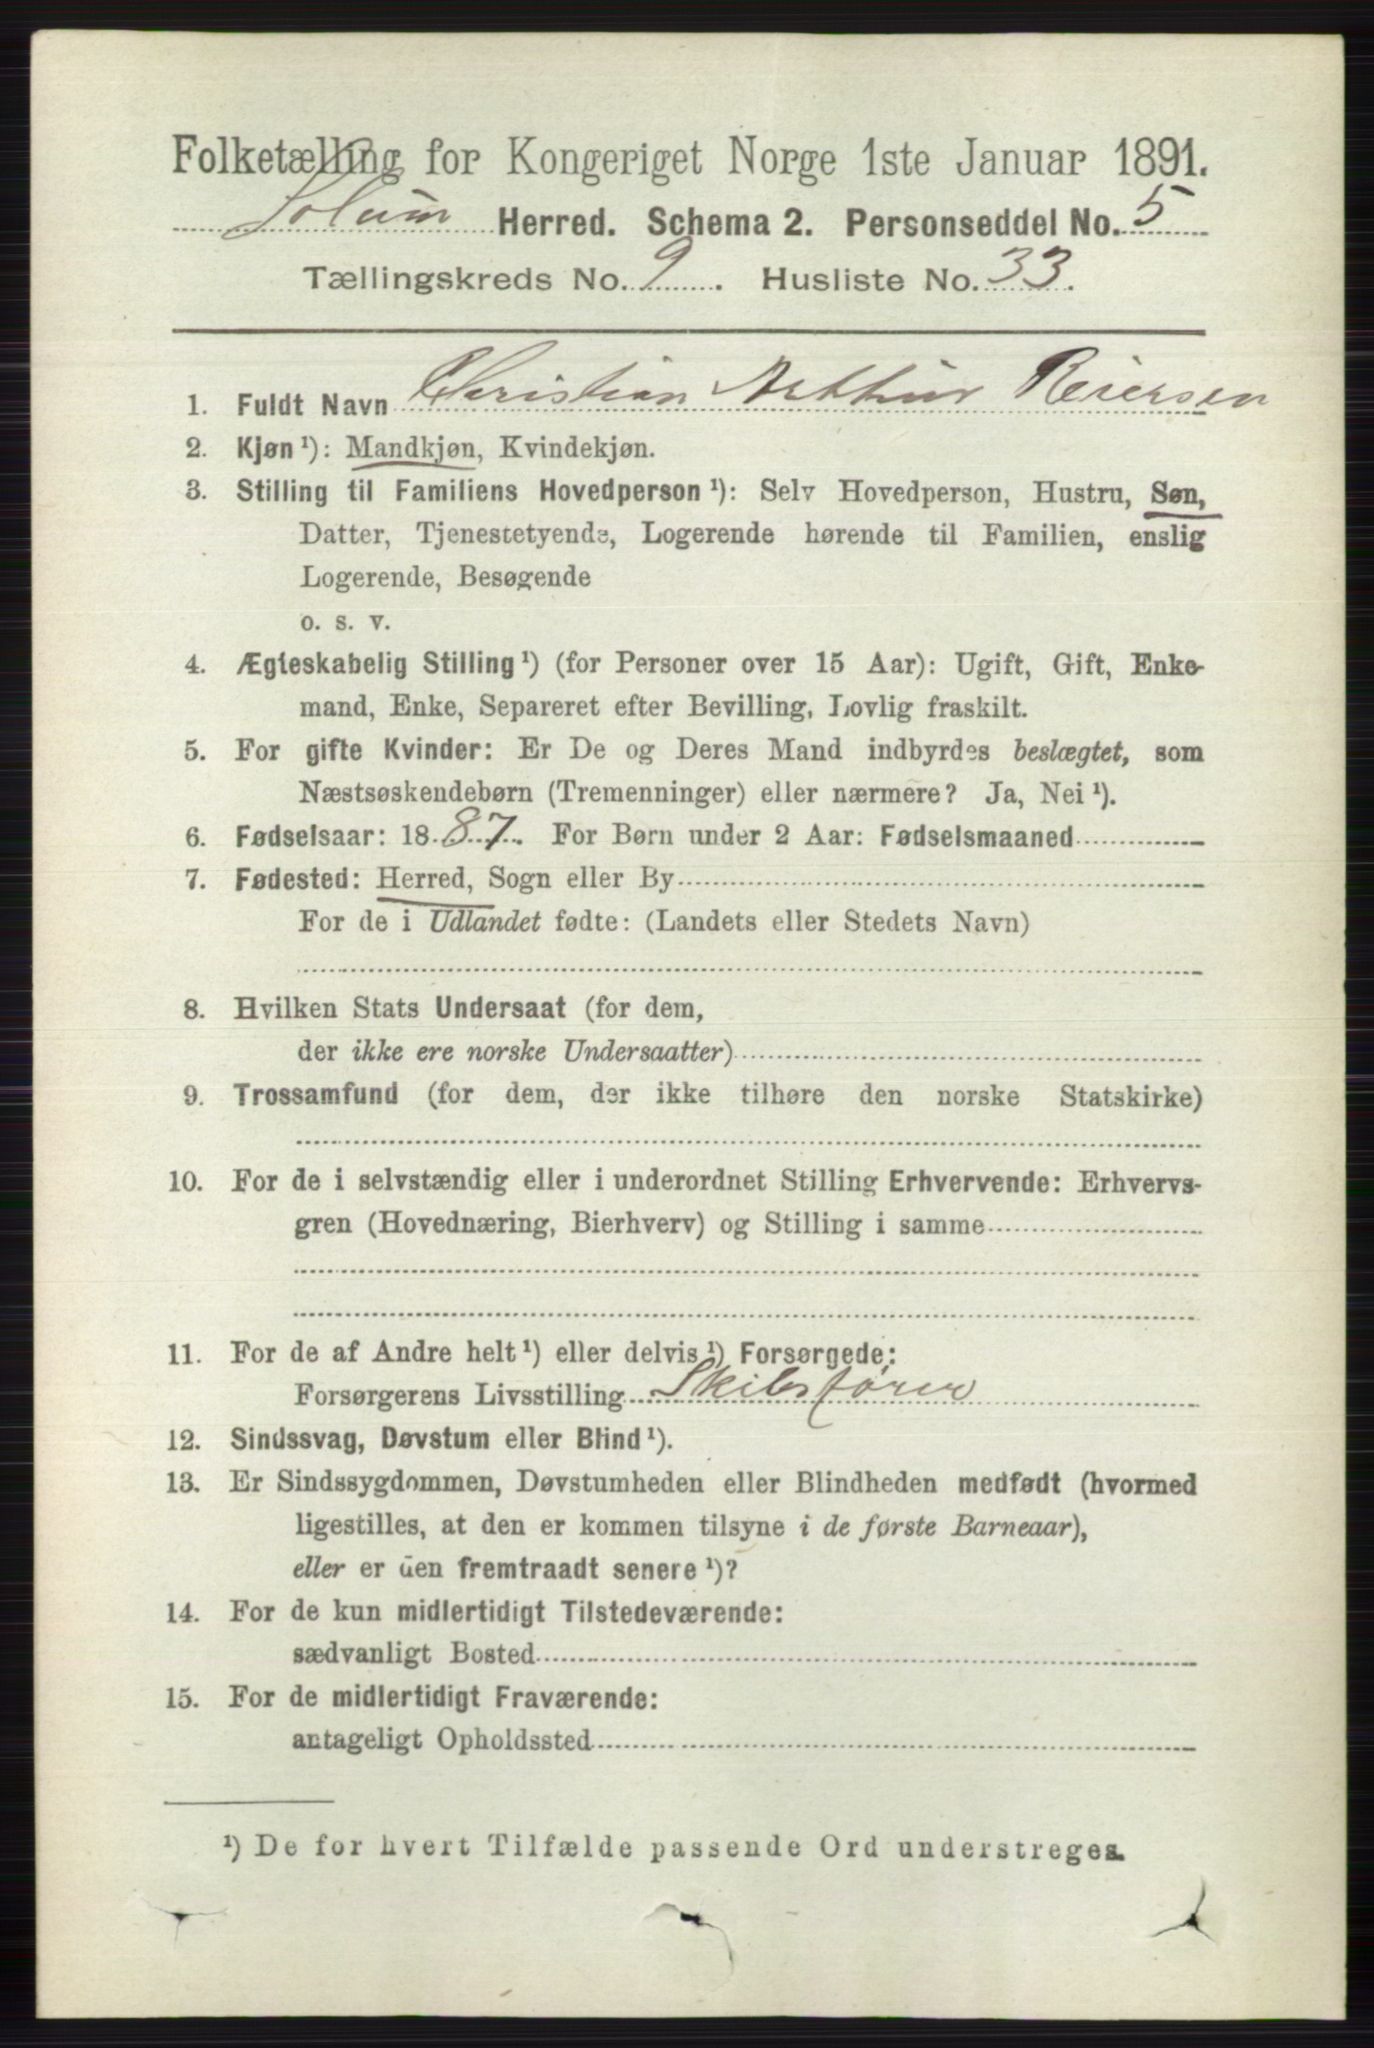 Folketælling for Kongeriget Norge 1ste Januar 1891.
Solum Herred. Schema 2. Personseddel No. 5
Tællingskreds No. 9. Husliste No. 33.
1. Fuldt Navn Christian Arthur Reiersen
2. Kjøn ¹): Mandkjøn, Kvindekjøn.
3. Stilling til Familiens Hovedperson ¹): Selv Hovedperson, Hustru, Søn,
Datter, Tjenestetyende, Logerende hørende til Familien, enslig
Logerende, Besøgende
o. s. v.
4. Ægteskabelig Stilling ¹) (for Personer over 15 Aar): Ugift, Gift, Enke-
mand, Enke, Separeret efter Bevilling, Lovlig fraskilt.
5. For gifte Kvinder: Er De og Deres Mand indbyrdes beslægtet, som
Næstsøskendebørn (Tremenninger) eller nærmere? Ja, Nei ¹).
6. Fødselsaar: 1887. For Børn under 2 Aar: Fødselsmaaned
7. Fødested: Herred, Sogn eller By
For de i Udlandet fødte: (Landets eller Stedets Navn)
8. Hvilken Stats Undersaat (for dem,
der ikke ere norske Undersaatter)
9. Trossamfund (for dem, der ikke tilhøre den norske Statskirke)
10. For de i selvstændig eller i underordnet Stilling Erhvervende: Erhvervs-
gren (Hovednæring, Bierhverv) og Stilling i samme
11. For de af Andre helt ¹) eller delvis ¹) Forsørgede:
Forsørgerens Livsstilling Skibsfører
12. Sindssvag, Døvstum eller Blind ¹).
13. Er Sindssygdommen, Døvstumheden eller Blindheden medfødt (hvormed
ligestilles, at den er kommen tilsyne i de første Barneaar),
eller er den fremtraadt senere ¹)?
14. For de kun midlertidigt Tilstedeværende:
sædvanligt Bosted
15. For de midlertidigt Fraværende:
antageligt Opholdssted
¹) De for hvert Tilfælde passende Ord understreges.